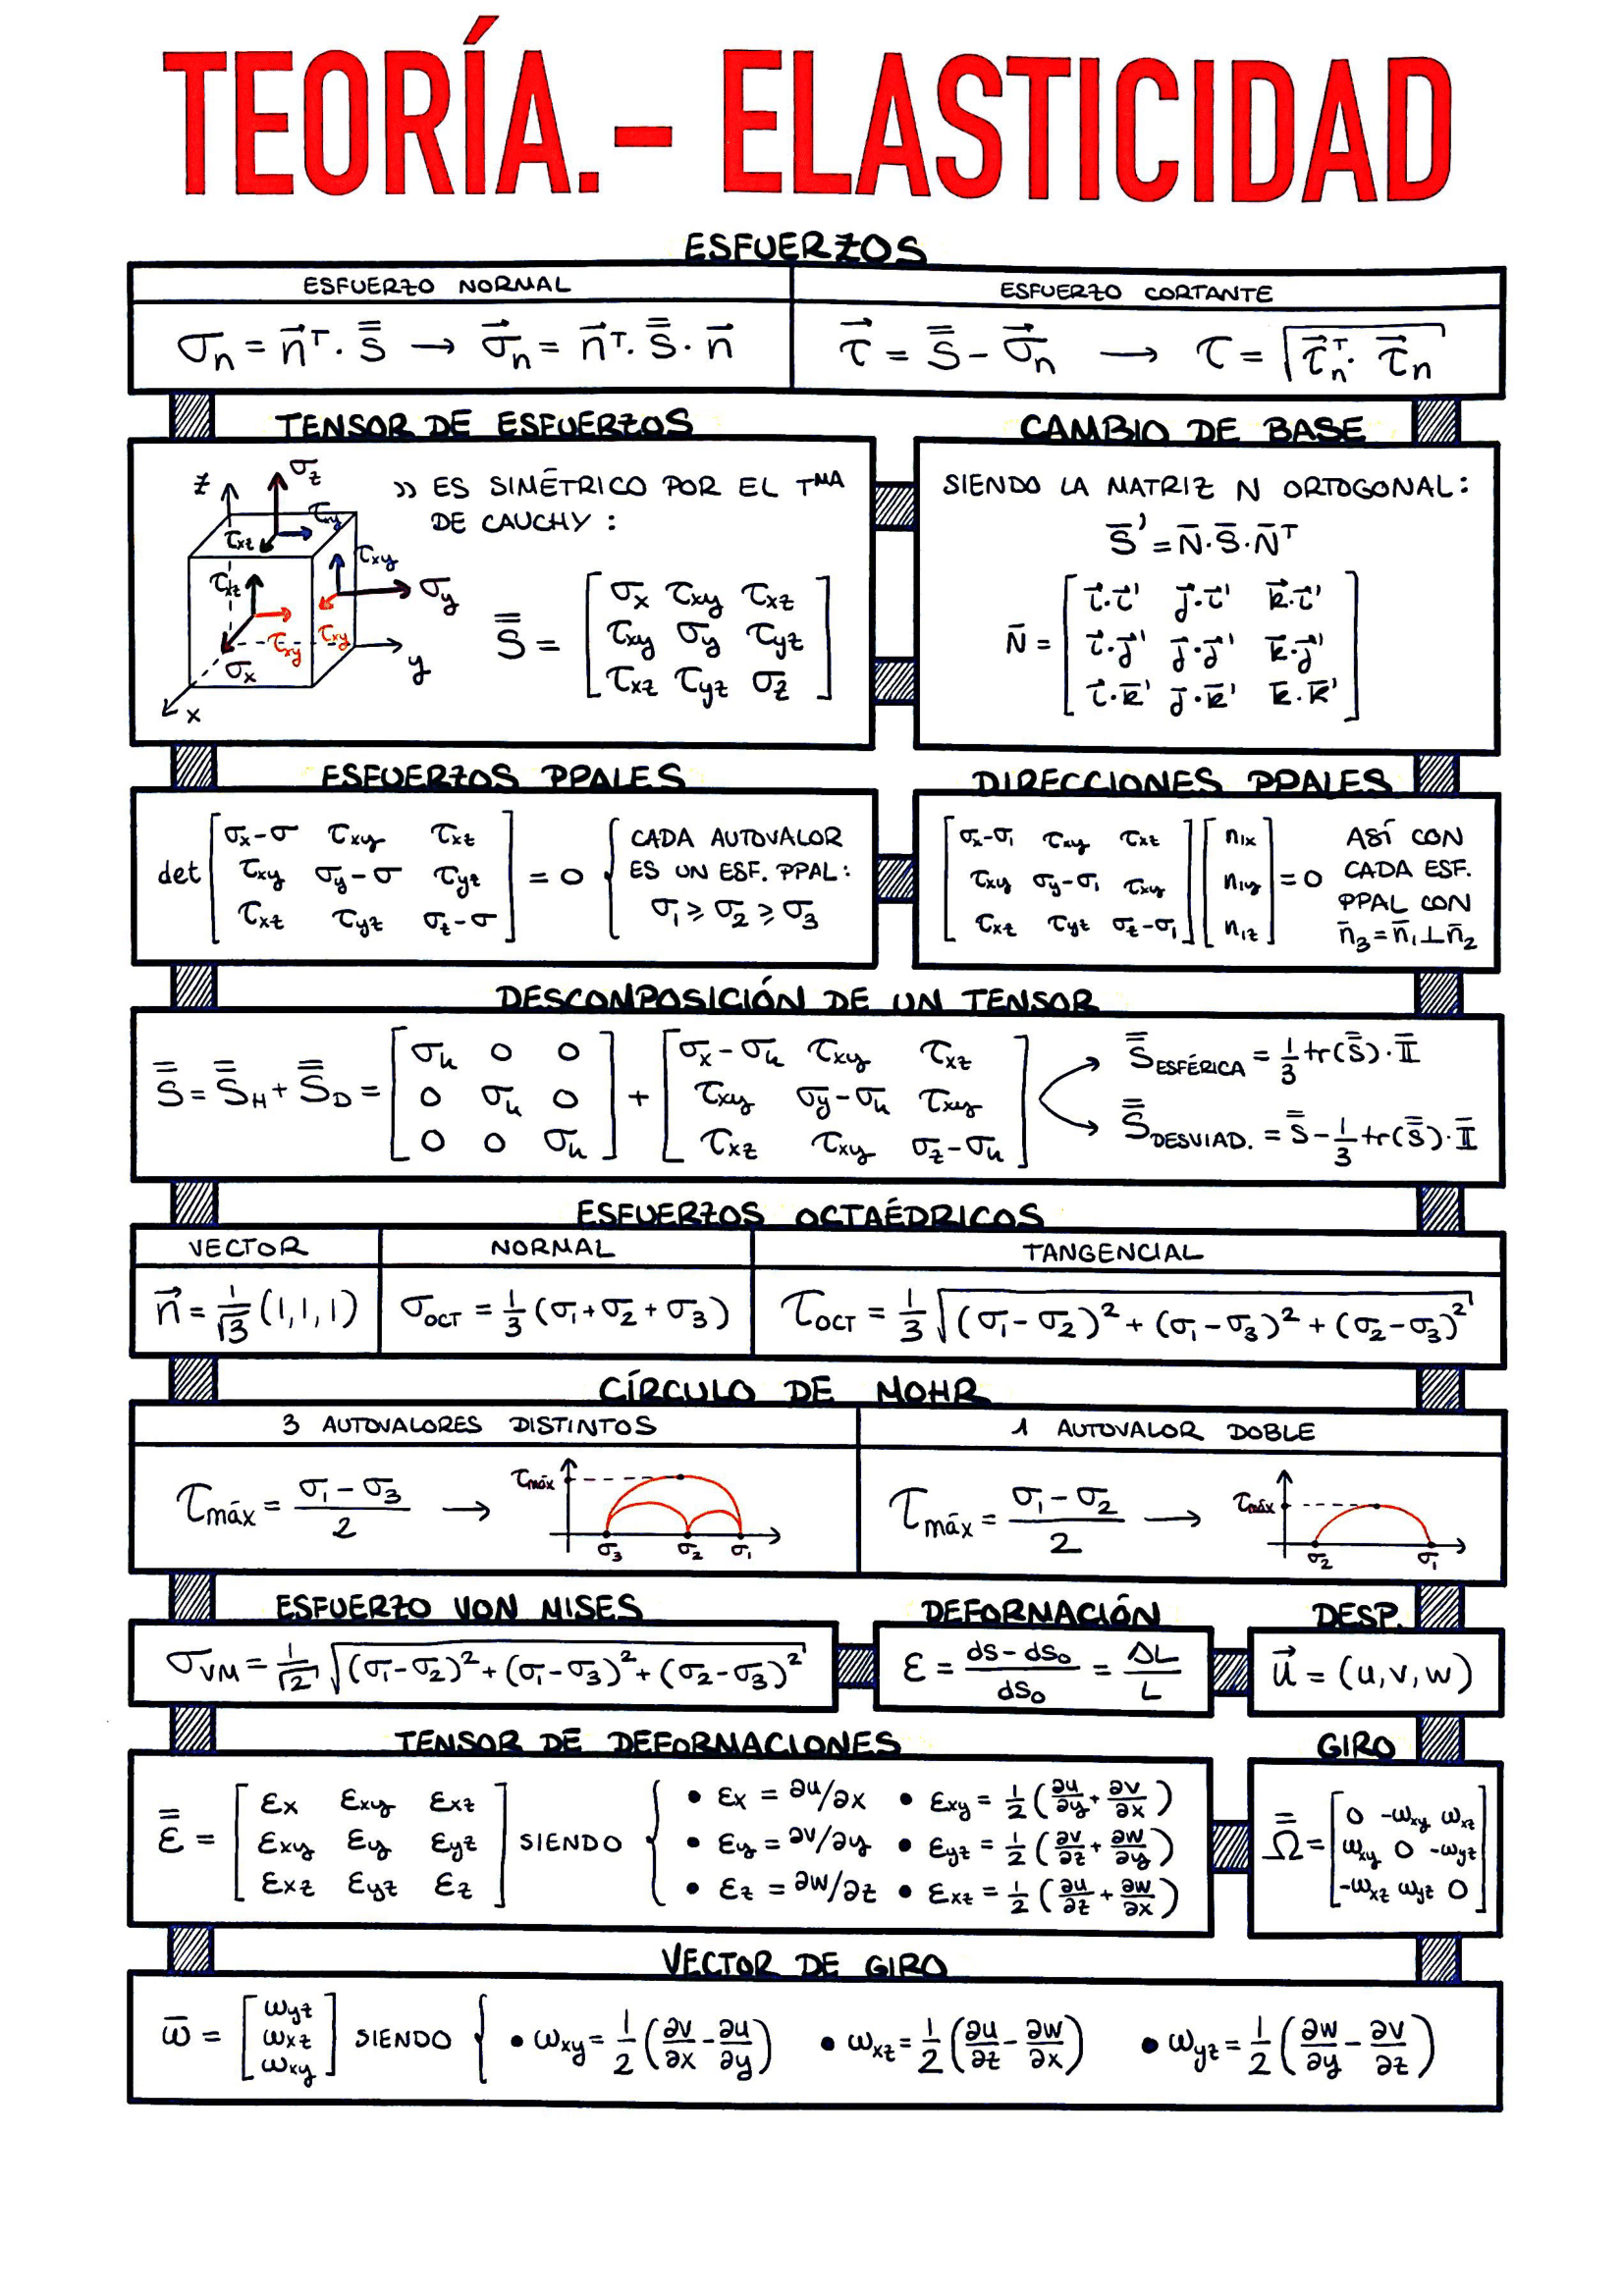 TEORÍA.- ELASTICIDAD
ESFUERZOS
ESFUERZO NORMAL
σn = n⃗ᵀ · S̿ → σ⃗n = n⃗ᵀ · S̿ · n⃗
ESFUERZO CORTANTE
τ⃗ = S̿ - σ⃗n → τ = √(τ⃗nᵀ · τ⃗n)
TENSOR DE ESFUERZOS
z σz
τxz τxy
τxz τxy σy
τxy τxy
σx y
x
» ES SIMÉTRICO POR EL Tᴹᴬ
DE CAUCHY :
S̿ = [ σx τxy τxz
τxy σy τyz
τxz τyz σz ]
CAMBIO DE BASE
SIENDO LA MATRIZ N ORTOGONAL:
S̄' = N̄ · S̄ · N̄ᵀ
N̄ = [ i⃗·i⃗' j⃗·i⃗' k⃗·i⃗'
i⃗·j⃗' j⃗·j⃗' k⃗·j⃗'
i⃗·k⃗' j⃗·k⃗' k⃗·k⃗' ]
ESFUERZOS PPALES
det [ σx-σ τxy τxz
τxy σy-σ τyz
τxz τyz σz-σ ] = 0
CADA AUTOVALOR
ES UN ESF. PPAL:
σ1 ≥ σ2 ≥ σ3
DIRECCIONES PPALES
[ σx-σ1 τxy τxz
τxy σy-σ1 τxy
τxz τyz σz-σ1 ] [ n1x
n1y
n1z ] = 0
ASÍ CON
CADA ESF.
PPAL CON
n̄3 = n̄1 ⊥ n̄2
DESCOMPOSICIÓN DE UN TENSOR
S̿ = S̿H + S̿D = [ σh 0 0
0 σh 0
0 0 σh ] + [ σx-σh τxy τxz
τxy σy-σh τxy
τxz τxy σz-σh ]
S̿ESFÉRICA = 1/3 tr(S̿) · Ī
S̿DESVIAD. = S̿ - 1/3 tr(S̿) · Ī
ESFUERZOS OCTAÉDRICOS
VECTOR
n⃗ = 1/√3 (1,1,1)
NORMAL
σOCT = 1/3 (σ1 + σ2 + σ3)
TANGENCIAL
τOCT = 1/3 √((σ1 - σ2)² + (σ1 - σ3)² + (σ2 - σ3)²)
CÍRCULO DE MOHR
3 AUTOVALORES DISTINTOS
τmáx = (σ1 - σ3)/2 →
τmáx
σ3 σ2 σ1
1 AUTOVALOR DOBLE
τmáx = (σ1 - σ2)/2 →
τmáx
σ2 σ1
ESFUERZO VON MISES
σVM = 1/√2 √((σ1 - σ2)² + (σ1 - σ3)² + (σ2 - σ3)²)
DEFORMACIÓN
ε = (ds - ds0)/ds0 = ΔL/L
DESP.
u⃗ = (u,v,w)
TENSOR DE DEFORMACIONES
ε̿ = [ εx εxy εxz
εxy εy εyz
εxz εyz εz ] SIENDO
• εx = ∂u/∂x • εxy = 1/2 (∂u/∂y + ∂v/∂x)
• εy = ∂v/∂y • εyz = 1/2 (∂v/∂z + ∂w/∂y)
• εz = ∂w/∂z • εxz = 1/2 (∂u/∂z + ∂w/∂x)
GIRO
Ω̿ = [ 0 -ωxy ωxz
ωxy 0 -ωyz
-ωxz ωyz 0 ]
VECTOR DE GIRO
ω̄ = [ ωyz
ωxz
ωxy ] SIENDO { • ωxy = 1/2 (∂v/∂x - ∂u/∂y) • ωxz = 1/2 (∂u/∂z - ∂w/∂x) • ωyz = 1/2 (∂w/∂y - ∂v/∂z)